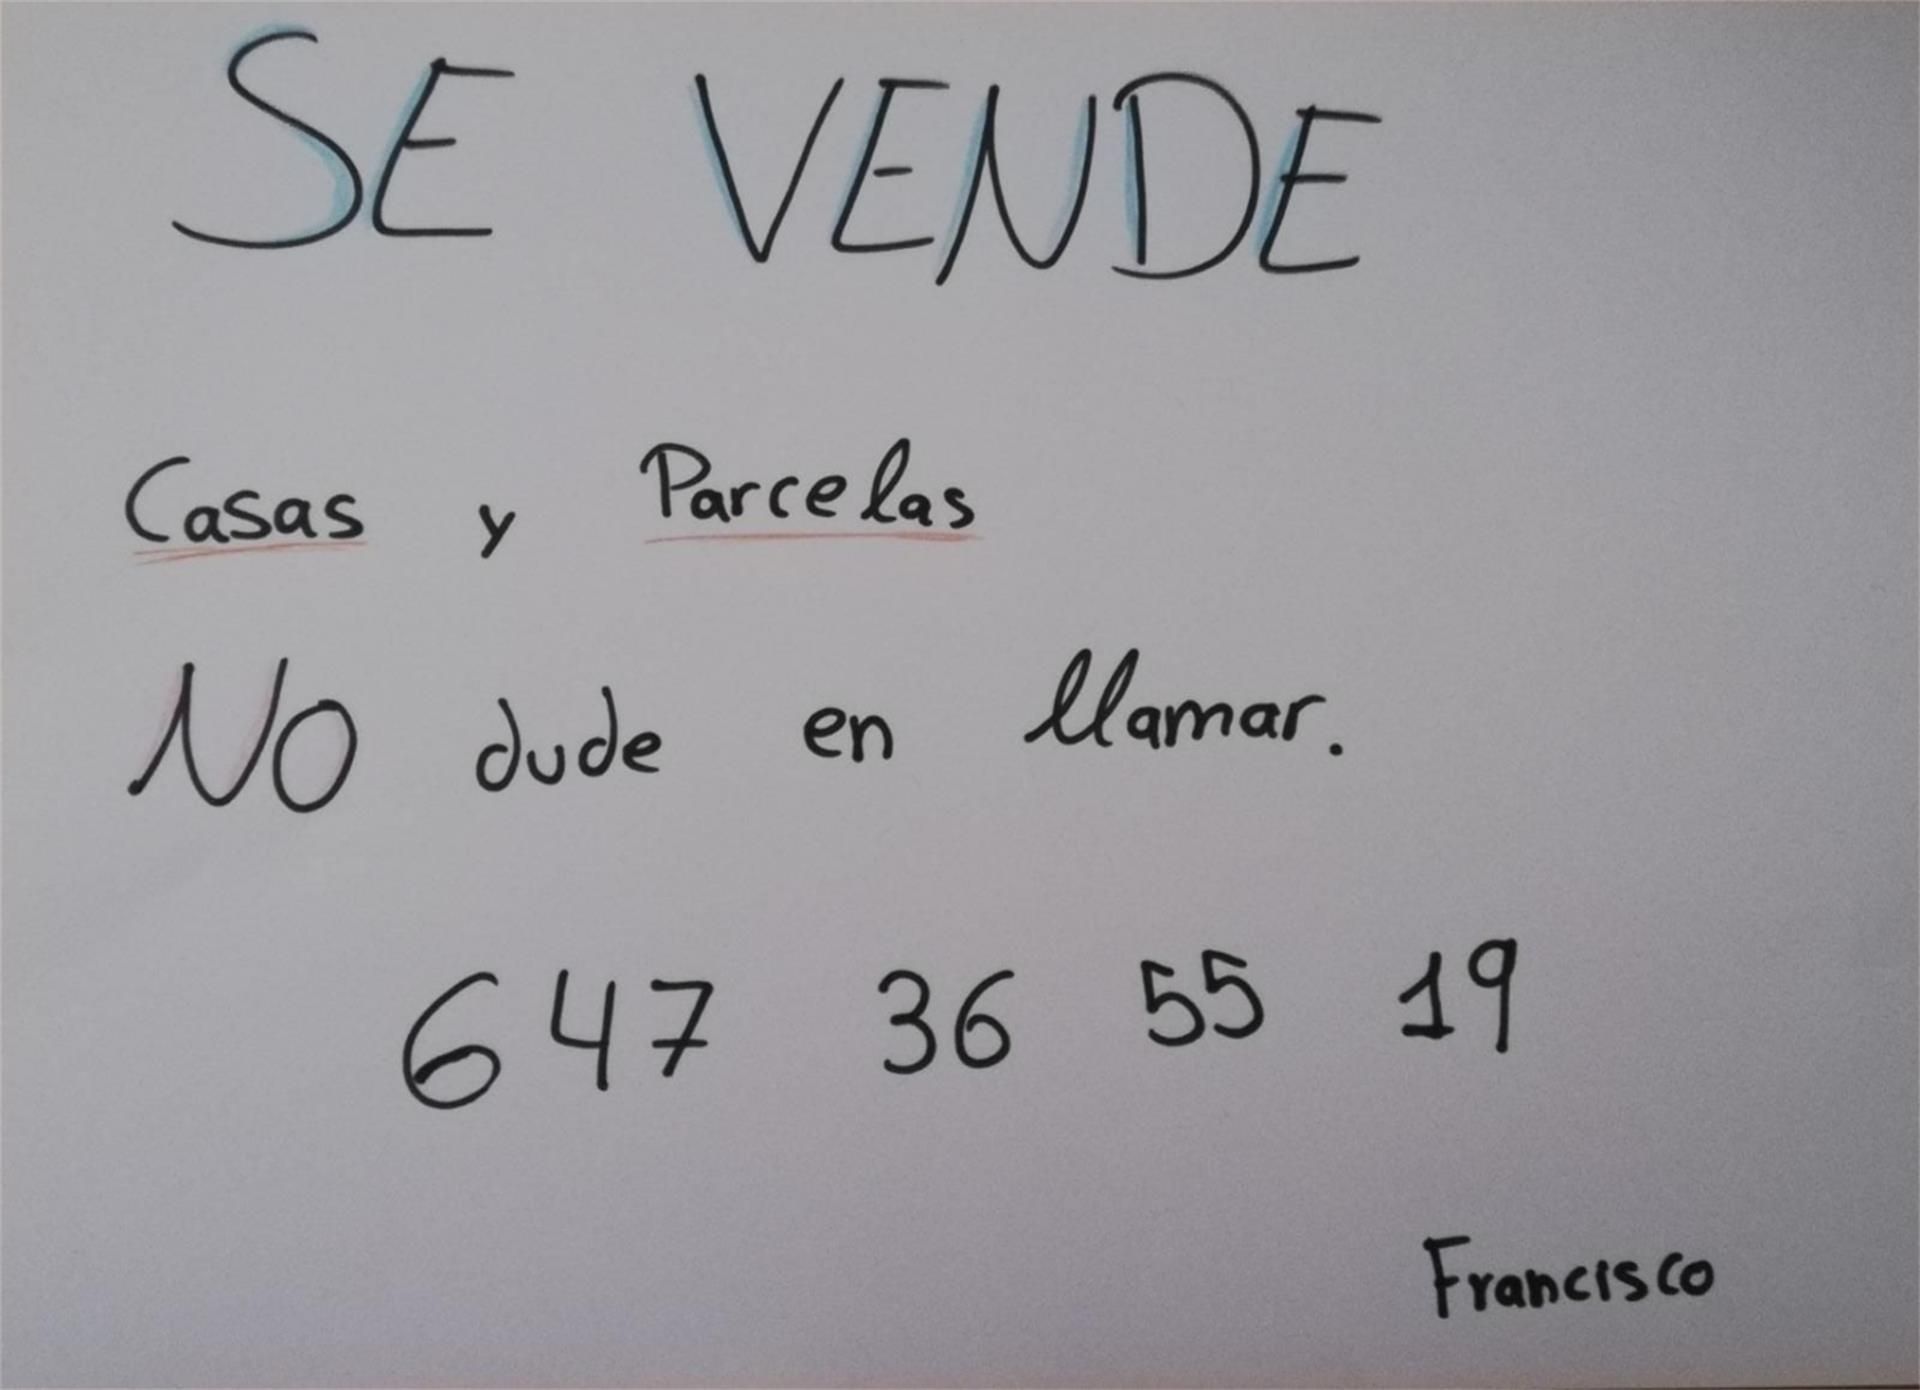 SE VENDE
Casas y Parcelas
NO dude en llamar.
647 36 55 19
Francisco